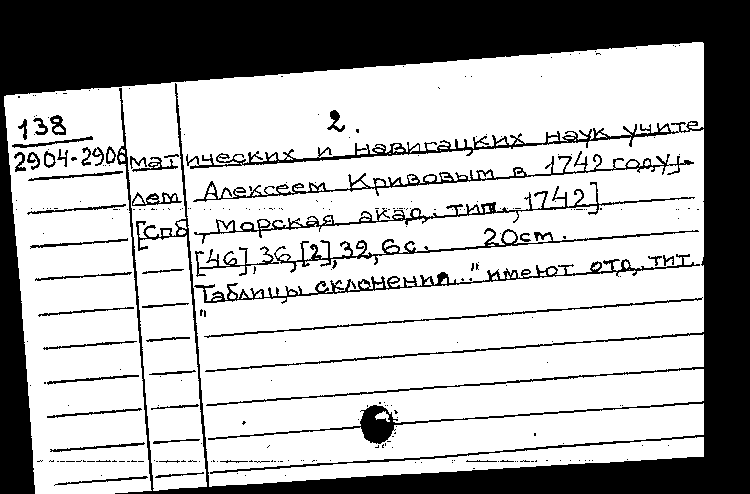 138
2.
2904-2906 матических и навигацких наук учите
лем Алексеем Кривовым в 1742 году.
[Спб, Морская акад. тип., 1742]
[46], 36, [2], 32, 6 с. 20 ст.
Таблицы склонения..." имеют отд. тит.
"